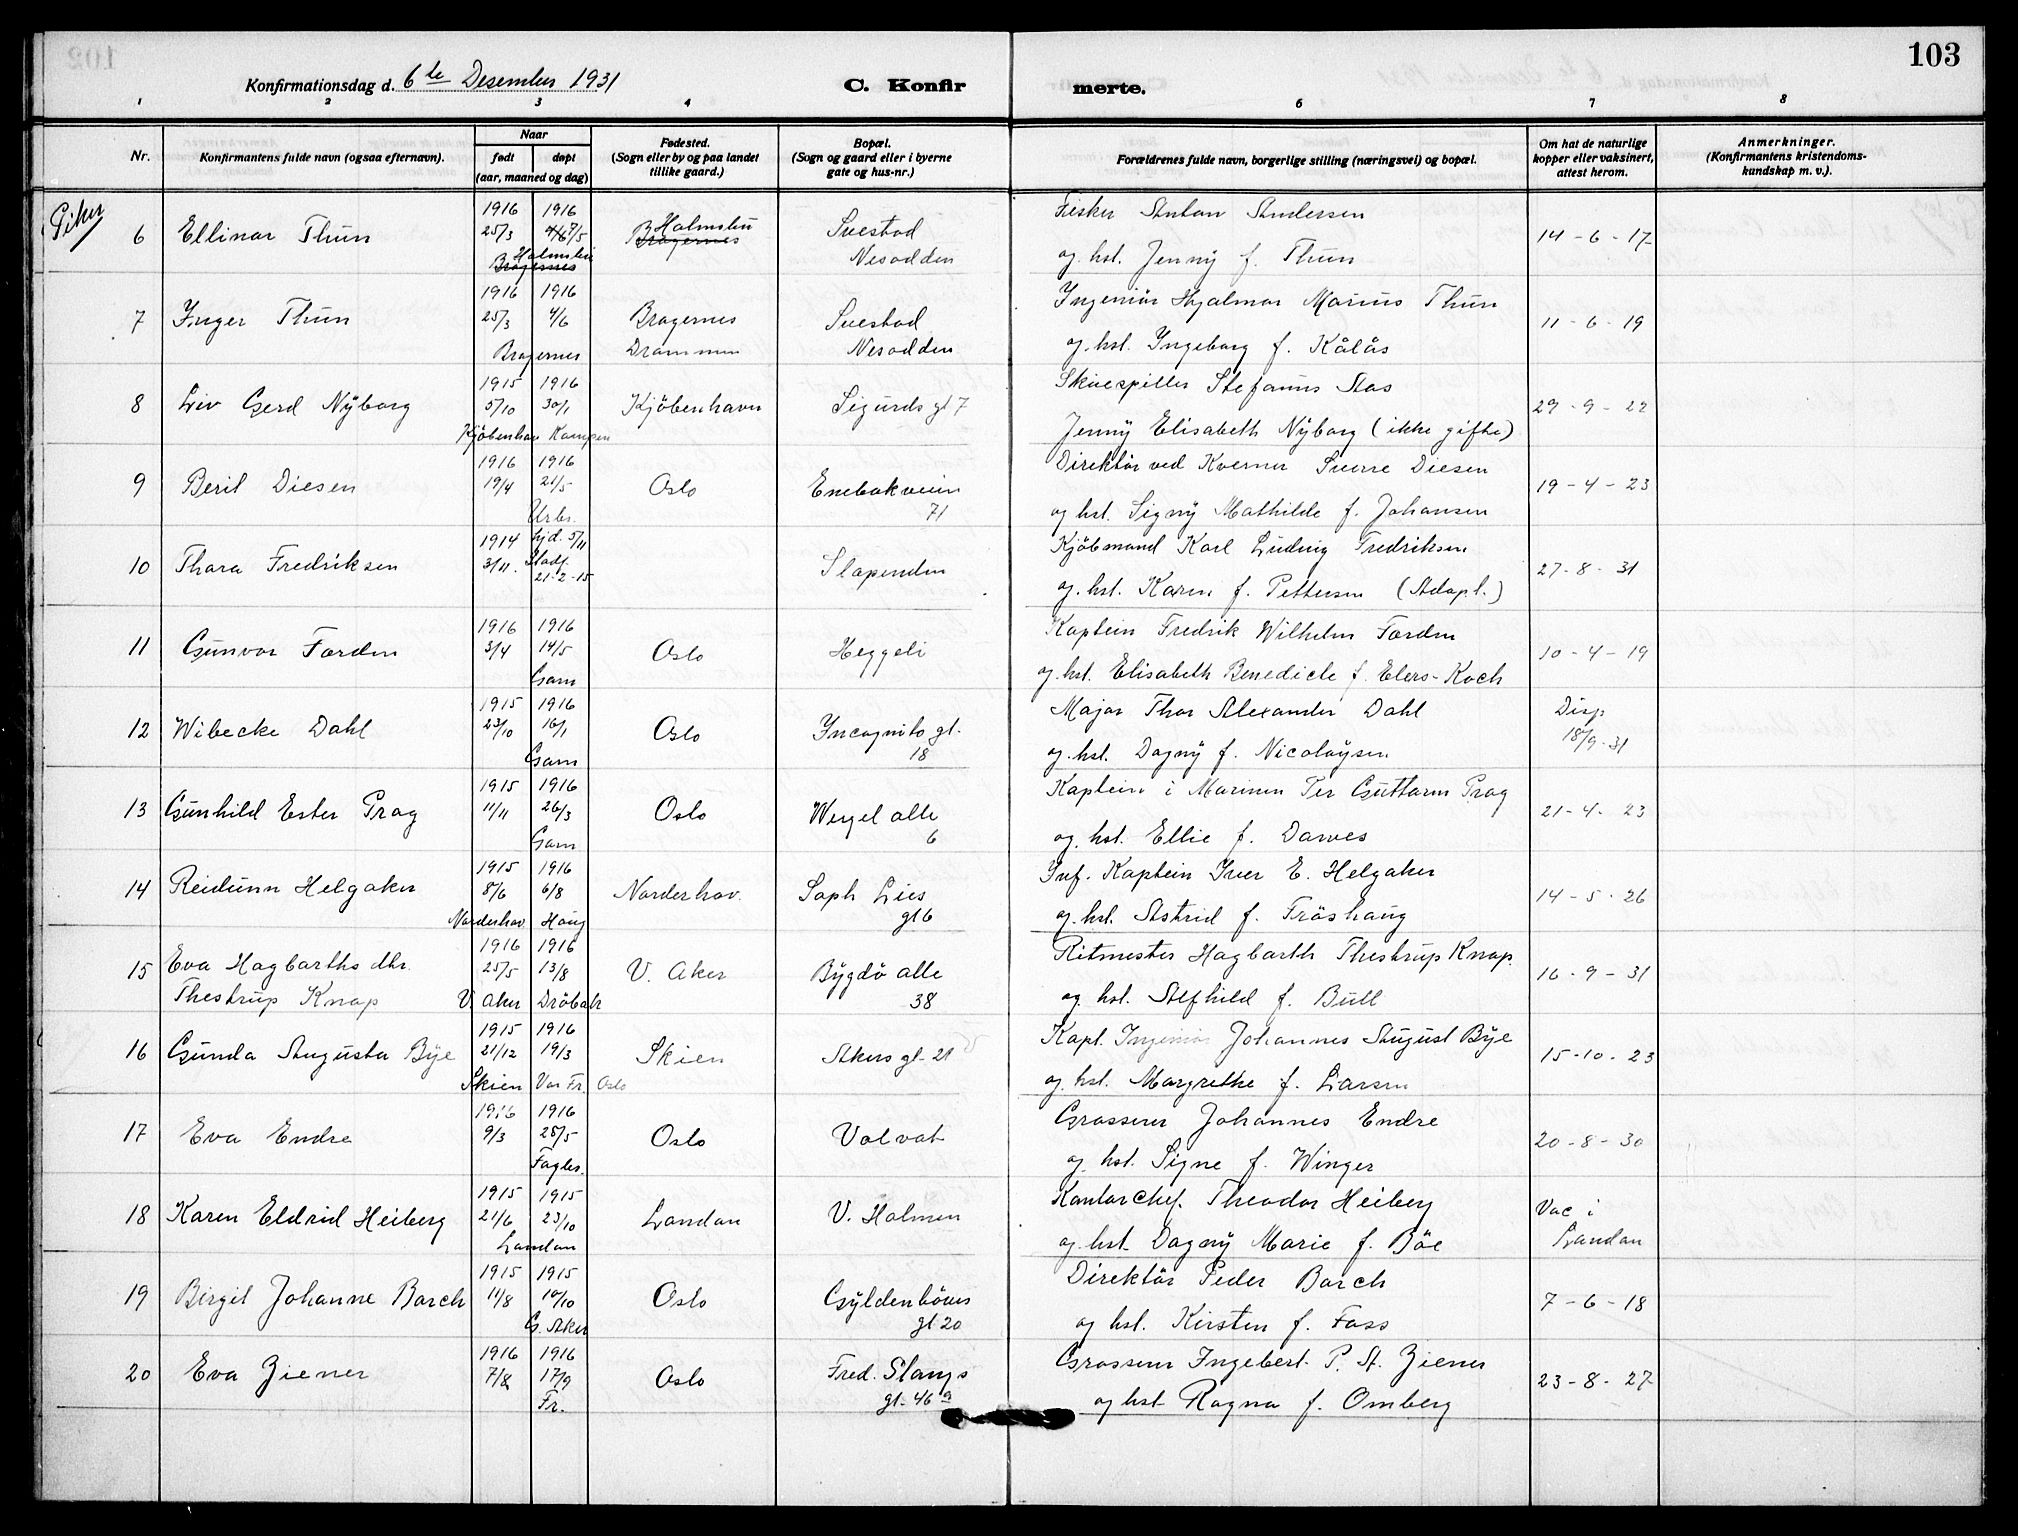 103
Konfirmationsdag d. 6te Desember 1931
C. Konfir
merte.
1 2 3 4 6 7 8
Nr.
Konfirmantens fulde navn (ogsaa efternavn).
Naar
født
døpt
(aar, maaned og dag)
Fødested.
(Sogn eller by og paa landet
tillike gaard.)
Bopæl.
(Sogn og gaard eller i byerne
gate og hus-nr.)
Forældrenes fulde navn, borgerlige stilling (næringsvei) og bopæl.
Om hat de naturlige
kopper eller vaksinert,
attest herom.
Anmerkninger.
(Konfirmantens kristendoms-
kundskap m. v.).
Piker
6 Ellinor Thun
1916 25/3
1916 7/5
Holmsbu
Bragernes
Holmsbu
Bragernes
Svestad
Nesodden
Fisker Anton Andersen
og hst. Jenny f. Thun
14 - 6 - 17
7 Inger Thun
1916 25/3
1916 4/6
Bragernes
Bragernes
Drammen
Svestad
Nesodden
Ingeniör Hjalmar Marius Thun
og hst. Ingeborg f. Kålås
11 - 6 - 19
8 Liv Gerd Nyborg
1915 5/10
1916 30/1
Kjöbenhav Kampen
Kjöbenhavn
Sigurds gt 7
Skuespiller Stefanus Aas
Jenny Elisabeth Nyborg (ikke gifte)
29 - 9 - 22
9 Beril Diesen
1916 19/4
1916 21/5
Urbr.
Oslo
Enebakveien
71
Direktör ved Kverner Sverre Diesen
og hst. Signy Mathilde f. Johansen
19 - 4 - 23
10 Thora Fredriksen
1914 3/11.
hjd. 5/11
Stadf.
21-2-15
Slependen
Kjöbmand Karl Ludvig Fredriksen
og hst. Karen f. Pettersen (Adopt.)
27 - 8 - 31
11 Gunvor Forden
1916 3/4
1916 14/5
Gam
Oslo
Heggeli
Kaptein Fredrik Wilhelm Forden
og hst. Elisabeth Benedicte f. Elers-Koch
10 - 4 - 19
12 Wibecke Dahl
1915 23/10
1916 16/1
Gam
Oslo
Incognito gt.
18
Major Thor Alexander Dahl
og hst. Dagny f. Nicolaysen
Disp
18/9-31
13 Gunhild Ester Prag
1915 11/11
1916 26/3
Gam
Oslo
Wergel alle
6
Kaptein i Marinen Per Guttorm Prag
og hst. Ellie f. Dawes
21 - 4 - 23
14 Reidunn Helgaker
1915 8/6
1916 6/8
Norderhov Haug
Norderhov.
Soph Lies
gt 6
Inf. Kaptein Iver E. Helgaker
og hst. Astrid f. Fröshaug
14 - 5 - 26
15 Eva Hagbarths dtr.
Thestrup Knap
1916 25/5
1916 13/8
V. Aker Dröbak
V. Aker
Bygdö alle
38
Ritmester Hagbarth Thestrup Knap.
og hst. Alfhild f. Bull
16 - 9 - 31
16 Gunda Augusta Bye
1915 21/12
1916 19/3
Skien Vor Fr. Oslo
Skien
Akers gt. 21
Kapt. Ingeniör Johannes August Bye
og hst. Margrethe f. Larsen
15-10-23
17 Eva Endre
1916 9/3
1916 28/5
Fagbr.
Oslo
Volvat
Grosserer Johannes Endre
og hst. Signe f. Winger
20 - 8 - 30
18 Karen Eldrid Heiberg
1915 21/6
1915 23/10
London
London
V. Holmen
Kontorchef. Theodor Heiberg
og hst. Dagny Marie f. Böe
Vac i
London
19 Birgit Johanne Borch
1915 11/8
1915 10/10
G. Aker
Oslo
Gyldenlöves
gt 20
Direktör Peder Borch
og hst. Kirsten f. Foss
7 - 6 - 18
20 Eva Ziener
1916 7/8
1916 17/9
Fr.
Oslo
Fred. Stangs
gt. 46 a
Grosserer Ingebert P. A. Ziener
og hst Ragna f. Omberg
23 - 8 - 27